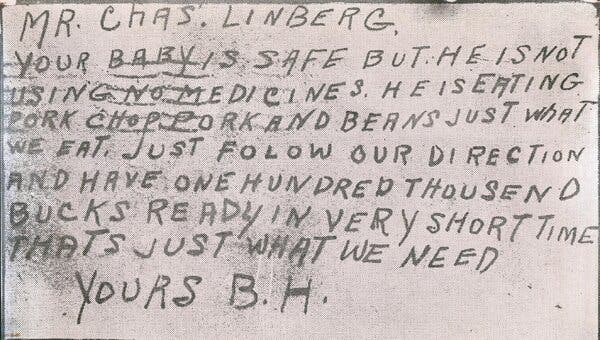 MR. CHAS. LINBERG.
YOUR BABY IS SAFE BUT. HE IS NOT
USING NO MEDICINES. HE IS EATING
PORK CHOP PORK AND BEANS JUST WHAT
WE EAT. JUST FOLOW OUR DIRECTION
AND HAVE ONE HUNDRED THOUSEND
BUCKS READY IN VERY SHORT TIME
THATS JUST WHAT WE NEED
YOURS B.H.